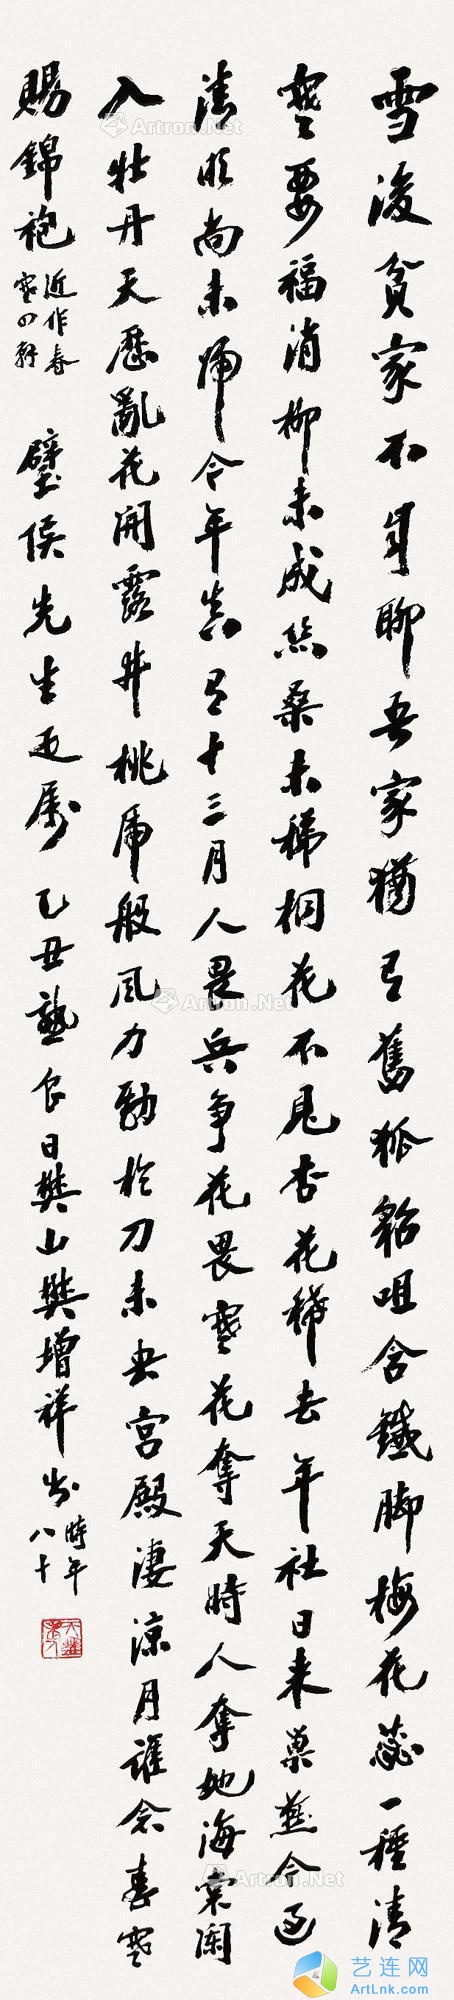 雪後貧家不自聊吾家猶有舊狐貂咀含鐵脚梅花蕊一種清
寒要福消柳未成絲桑未稊桐花不見杏花稀去年社日來巢燕今過
清明尚未歸今年真有十三月人畏兵爭花畏寒花奪天時人奪地海棠闌
入牡丹天歷亂花開露井桃虎般風力勁於刀未央宮殿淒涼月誰念春寒
賜錦袍
近作春
寒四
璧侯先生疋屬 乙丑熟食日樊山樊增祥書
時年
八十
天琴
老人
Artron.Net
Artron.Net
Artron.Net
Artron.Net
艺连网
ArtLnk.com